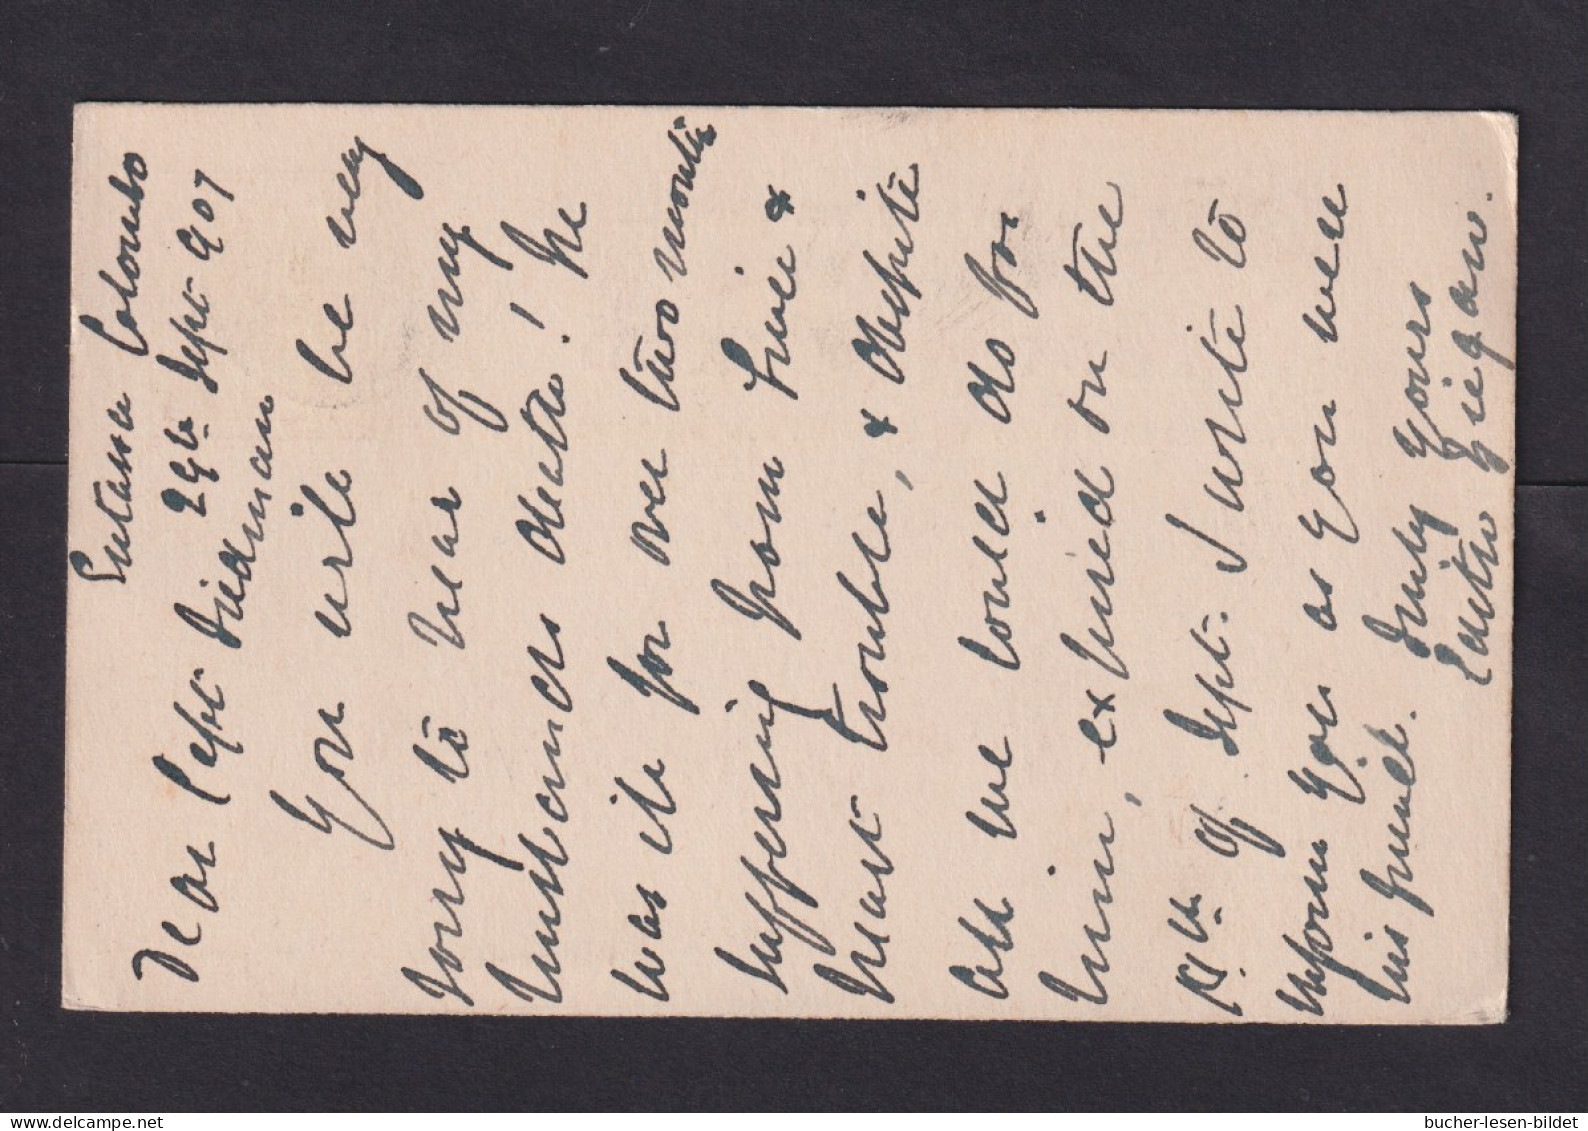 Colombo
29th Sept 907
Dear Capt Tiedman
You will be very
sorry to hear of my
husbands death! He
was ill for over two months
suffering from Liver &
heart trouble, & despite
all we could do for
him, expired on the
of Sept. I write to
inform you as you were
his friend. Truly Yours
bucher-lesen-bildet